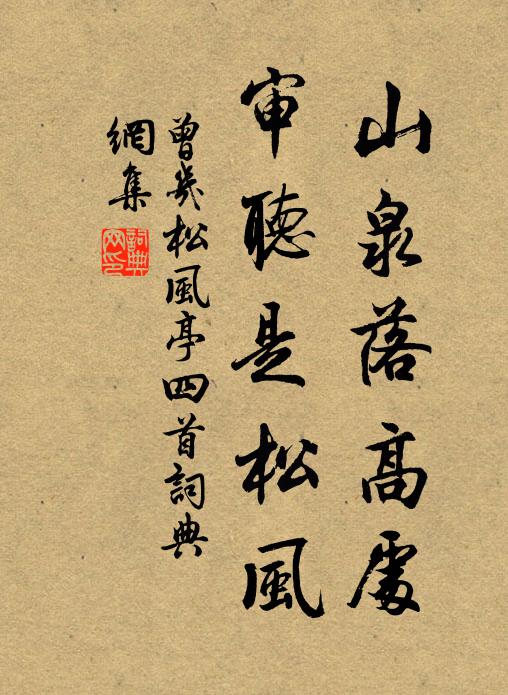 山泉落高處
审聽是松風
曾幾松風亭四首詞典
網集
詞典網印